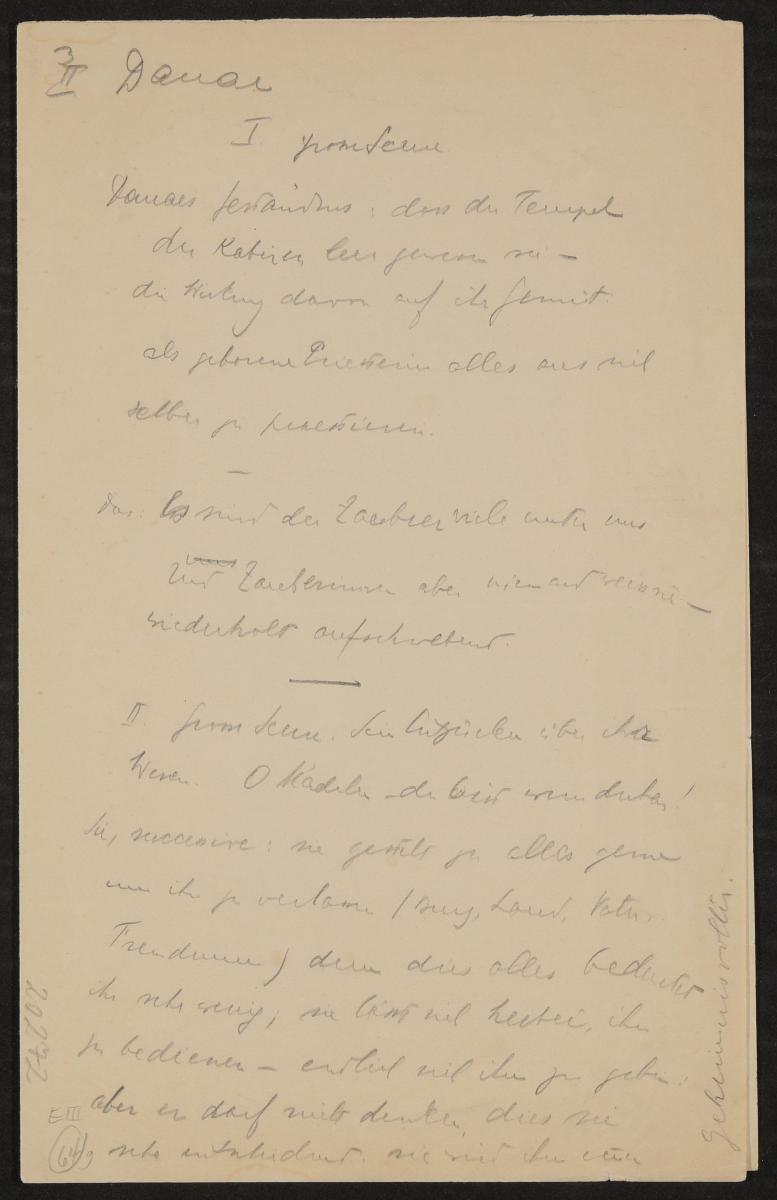 3
II Danae
I grosse Scene.
Danaes Geständnis: dass der Tempel
der Kabiren leer gewesen sei –
die Wirkung davon auf ihr Gemüt.
als geborene Priesterin alles aus sich
selber zu
–
Dan: Es sind der Zauberer viele unter uns
Und Zauberinnen aber niemand
wiederholt aufschwebend.
II. grosse Scene. Sein Entzücken über ihr
Wesen. O Mädchen – du bist wunderbar!
Sie, successive: sie gesteht zu alles gerne
um ihn zu verlassen (Burg, Land, Vater,
Freundinnen) denn dies alles bedeutet
ihr sehr wenig; sie lässt sich herbei, ihn
zu bedienen – endlich sich ihm zu geben:
aber er darf nicht denken, dies sei
so sehr entscheidend. sie wird ihm
geheimnisvoller.
20272
E III
64